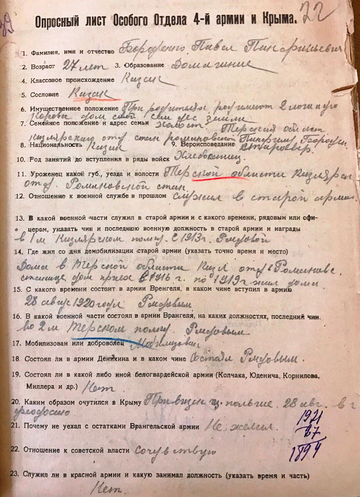 22
Опросный лист Особого Отдела 4-й армии и Крыма.
1. Фамилия, имя и отчество Бороденко Павел
2. Возраст 27 лет 3. Образование Домашнее
4. Классовое происхождение Казак
5. Сословие Казак
6. Имущественное положение При родителях
корова дом свой
7. Семейное положение и адрес семьи холост Терской област
Кизлярского отд стан
8. Национальность Казак 9. Вероисповедание
10. Род занятий до вступления в ряды войск Хлебопашец
11. Уроженец какой губ, уезда и волости Терской области Кизлярск
отд. стан
12. Отношение к военной службе в прошлом служил в старой армии
13. В какой военной части служил в старой армии и с какого времени, рядовым или офи-
цером, указать чин и последнюю военную должность в старой армии и награды
в 1м Кизлярском полку. с 1913 г. Рядовой
14. Где жил со дня демобилизации старой армии (указать точно время и место)
Дома в Терской области Кизл отд
1919 жил дома
15. С какого времени состоит в армии Врангеля, в каком чине вступил в армию
28 авг 1920 года Рядовым
16. В какой военной части состоял в армии Врангеля, на каких должностях, последний чин.
во 2м Терском полку. Рядовым
17. Мобилизован или доброволец
18. Состоял ли в армии Деникина и в каком чине Состоял Рядовым.
19. Состоял ли в какой либо иной белогвардейской армии (Колчака, Юденича, Корнилова,
Миллера и др.) Нет.
20. Каким образом очутился в Крыму 28 авг. в г
Феодосию
21. Почему не уехал с остатками Врангельской армии Не желал.
1921
27
1894
22. Отношение к советской власти Сочувствую
23. Служил ли в красной армии и какую занимал должность (указать время и часть)
Нет.